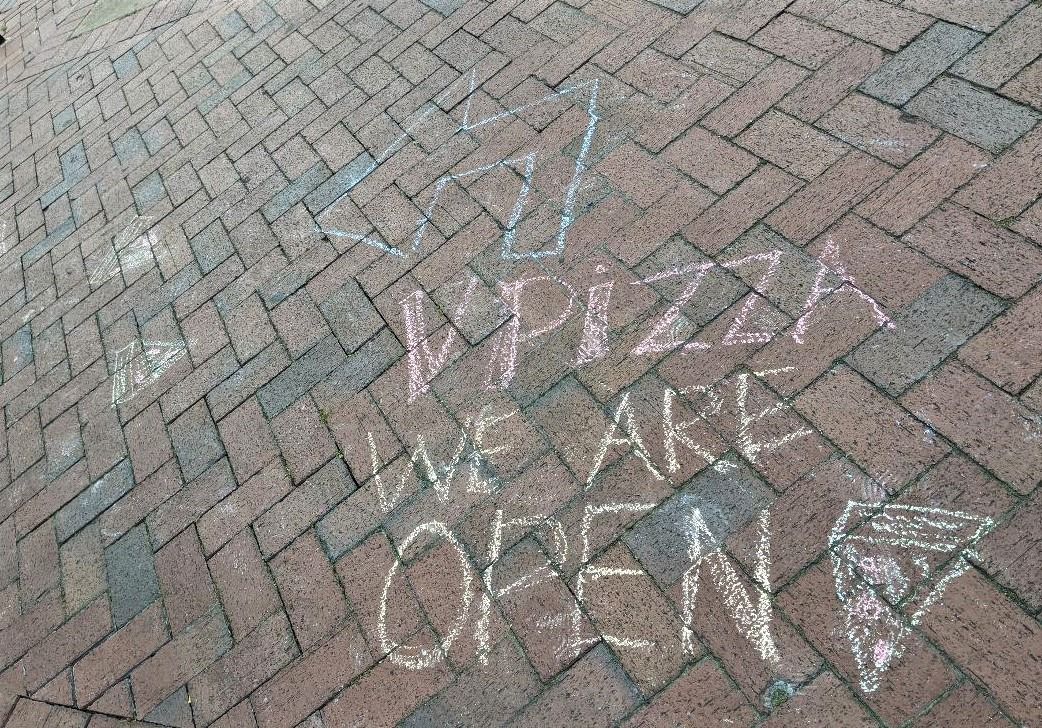 VPiZZA
WE ARE
OPEN